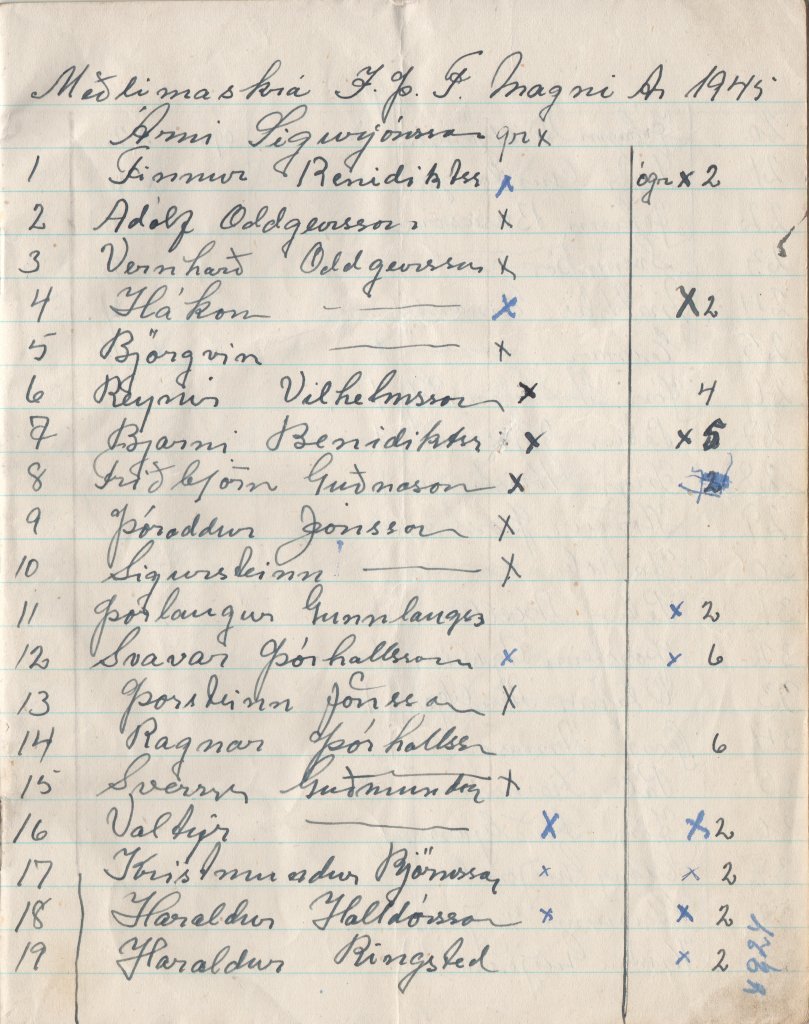 Meðlimaskrá Í.Þ.F. Magni Ár 1945
Árni Sigurjónsson gr x
1 Finnur Benidiktss x ógr x 2
2 Adólf Oddgeirsson x
3 Vernharð Oddgeirsson x
4 Hákon — x x 2
5 Björgvin — x
6 Reynir Vilhelmsson x 4
7 Bjarni Benidiktss x x 5
8 Friðbjörn Guðnason x 2
9 Þóroddur Jónsson x
10 Sigursteinn — x
11 Þórlaugur Gunnlaugss x 2
12 Svavar Þórhallsson x x 6
13 Þorsteinn Jónsson x
14 Ragnar Þórhallss 6
15 Sverrir Guðmundss x
16 Valtýr — x x 2
17 Kristmundur Björnsson x x 2
18 Haraldur Halldórsson x x 2
19 Haraldur Ringsted x 2